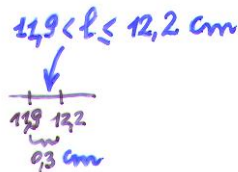 11,9 < l ≤ 12,2 cm
11,9 12,2
0,3 cm